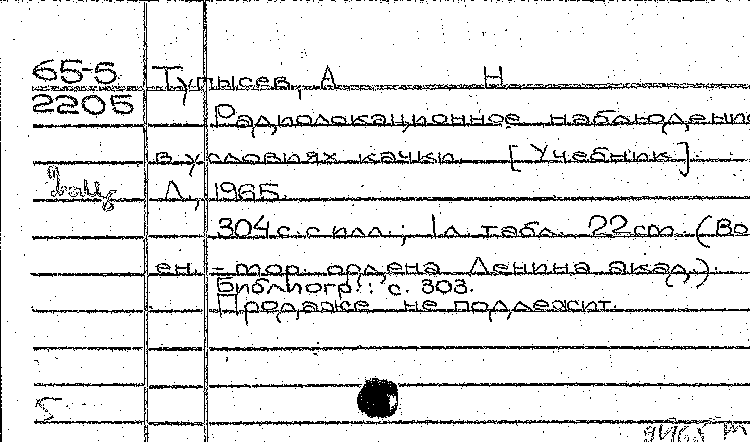 65-5 Тупысев, А Н
2205 Радиолокационное наблюдение
в условиях качки. [Учебник].
Л., 1965.
304 с. с илл.; 1 л. табл. 22 см. (Во
ен.-мор. ордена Ленина акад.).
Библиогр.: с. 303.
Продаже не подлежит.
5